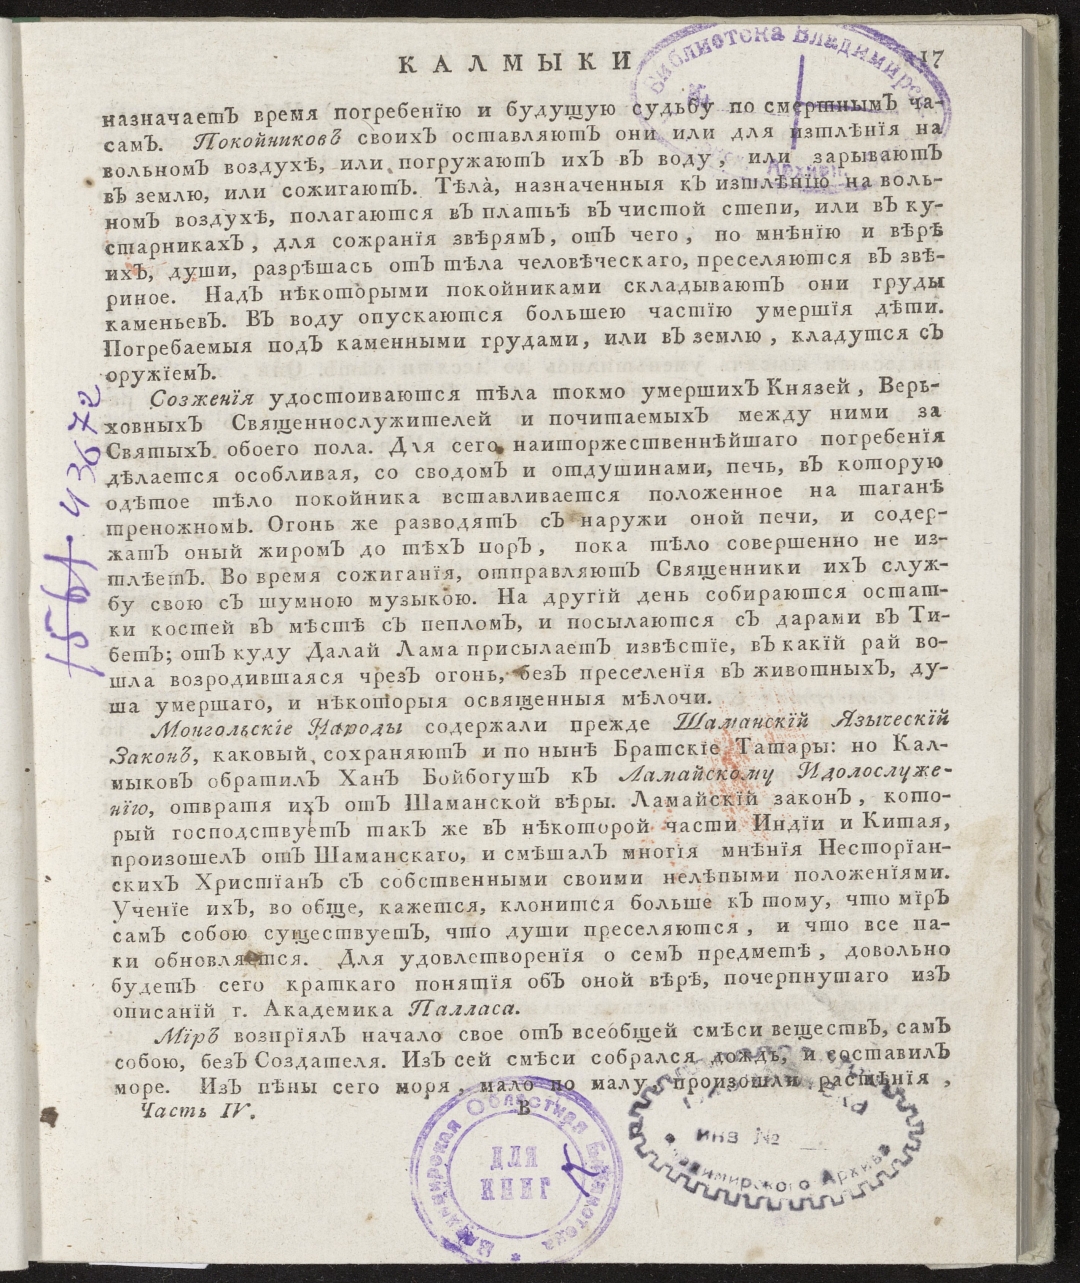 КАЛМЫКИ 17
назначаетъ время погребенїю и будущую судьбу по смертнымъ ча-
самъ. Покойниковъ своихъ оставляютъ они или для изтлѣнїя на
вольномъ воздухѣ, или погружаютъ ихъ въ воду, или зарываютъ
въ землю, или сожигаютъ. Тѣла̀, назначенныя къ изтлѣнїю на воль-
номъ воздухѣ, полагаются въ платьѣ въ чистой степи, или въ ку-
старникахъ, для сожранїя звѣрямъ, отъ чего, по мнѣнїю и вѣрѣ
ихъ, души, разрѣшась отъ тѣла человѣческаго, преселяются въ звѣ-
риное. Надъ нѣкоторыми покойниками складываютъ они груды
каменьевъ. Въ воду опускаются большею частїю умершїя дѣти.
Погребаемыя подъ каменными грудами, или въ землю, кладутся съ
оружїемъ.
Созженїя удостоиваются тѣла токмо умершихъ Князей, Верь-
ховныхъ Священнослужителей и почитаемыхъ между ними за
Святыхъ обоего пола. Для сего наиторжественнѣйшаго погребенїя
дѣлается особливая, со сводомъ и отдушинами, печь, въ которую
одѣтое тѣло покойника вставливается положенное на таганѣ
треножномъ. Огонь же разводятъ съ наружи оной печи, и содер-
жатъ оный жиромъ до тѣхъ поръ, пока тѣло совершенно не из-
тлѣетъ. Во время сожиганїя, отправляютъ Священники ихъ служ-
бу свою съ шумною музыкою. На другїй день собираются остат-
ки костей въ мѣстѣ съ пепломъ, и посылаются съ дарами въ Ти-
бетъ; отъ куду Далай Лама присылаетъ извѣстїе, въ какїй рай во-
шла возродившаяся чрезъ огонь, безъ преселенїя въ животныхъ, ду-
ша умершаго, и нѣкоторыя освященныя мѣлочи.
Монгольскїе Народы содержали прежде Шаманскїй Языческїй
Законъ, каковый сохраняютъ и по нынѣ Братскїе Татары: но Кал-
мыковъ обратилъ Ханъ Бойбогушъ къ Ламайскому Идолослуже-
нїю, отвратя ихъ отъ Шаманской вѣры. Ламайскїй законъ, кото-
рый господствуетъ такъ же въ нѣкоторой части Индїи и Китая,
произошелъ отъ Шаманскаго, и смѣшалъ многїя мнѣнїя Несторїан-
скихъ Христїанъ съ собственными своими нелѣпыми положенїями.
Ученїе ихъ, во обще, кажется, клонится больше къ тому, что мїръ
самъ собою существуетъ, что души преселяются, и что все па-
ки обновляется. Для удовлетворенїя о семъ предметѣ, довольно
будетъ сего краткаго понятїя объ оной вѣрѣ, почерпнутаго изъ
описанїй г. Академика Палласа.
Мїръ возпрїялъ начало свое отъ всеобщей смѣси веществъ, самъ
собою, безъ Создателя. Изъ сей смѣси собрался дождь, и составилъ
море. Изъ пѣны сего моря, мало по малу, произошли растѣнїя,
Часть IV. В
Библиотека Владимирск
Архив
1564 И 3672
Владимирская Областная Библиотека
ДЛЯ
КНИГ
ИНВ №
Владимирского Архива